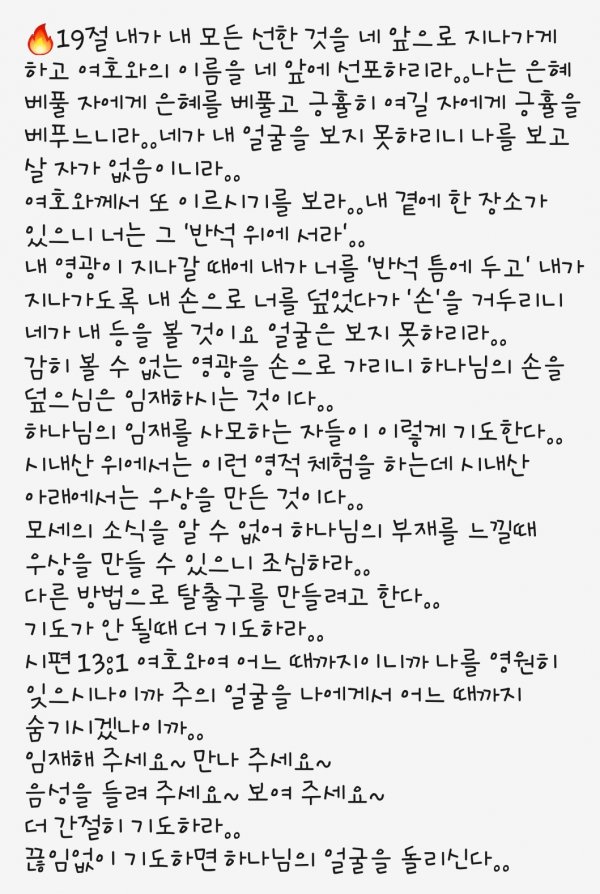 🔥19절 내가 내 모든 선한 것을 네 앞으로 지나가게
하고 여호와의 이름을 네 앞에 선포하리라。。나는 은혜
베풀 자에게 은혜를 베풀고 긍휼히 여길 자에게 긍휼을
베푸느니라。。네가 내 얼굴을 보지 못하리니 나를 보고
살 자가 없음이니라。。
여호와께서 또 이르시기를 보라。。내 곁에 한 장소가
있으니 너는 그 '반석 위에 서라'。。
내 영광이 지나갈 때에 내가 너를 '반석 틈에 두고' 내가
지나가도록 내 손으로 너를 덮었다가 '손'을 거두리니
네가 내 등을 볼 것이요 얼굴은 보지 못하리라。。
감히 볼 수 없는 영광을 손으로 가리니 하나님의 손을
덮으심은 임재하시는 것이다。。
하나님의 임재를 사모하는 자들이 이렇게 기도한다。。
시내산 위에서는 이런 영적 체험을 하는데 시내산
아래에서는 우상을 만든 것이다。。
모세의 소식을 알 수 없어 하나님의 부재를 느낄때
우상을 만들 수 있으니 조심하라。。
다른 방법으로 탈출구를 만들려고 한다。。
기도가 안 될때 더 기도하라。。
시편 13:1 여호와여 어느 때까지이니까 나를 영원히
잊으시나이까 주의 얼굴을 나에게서 어느 때까지
숨기시겠나이까。。
임재해 주세요~ 만나 주세요~
음성을 들려 주세요~ 보여 주세요~
더 간절히 기도하라。。
끊임없이 기도하면 하나님의 얼굴을 돌리신다。。